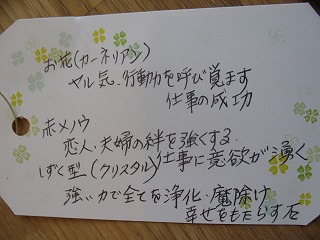 お花(カーネリアン)
ヤル気、行動力を呼び覚ます
仕事の成功
赤メノウ
恋人・夫婦の絆を強くする
しずく型(クリスタル)仕事に意欲が湧く
強い力で全てを浄化・魔除け
幸せをもたらす石